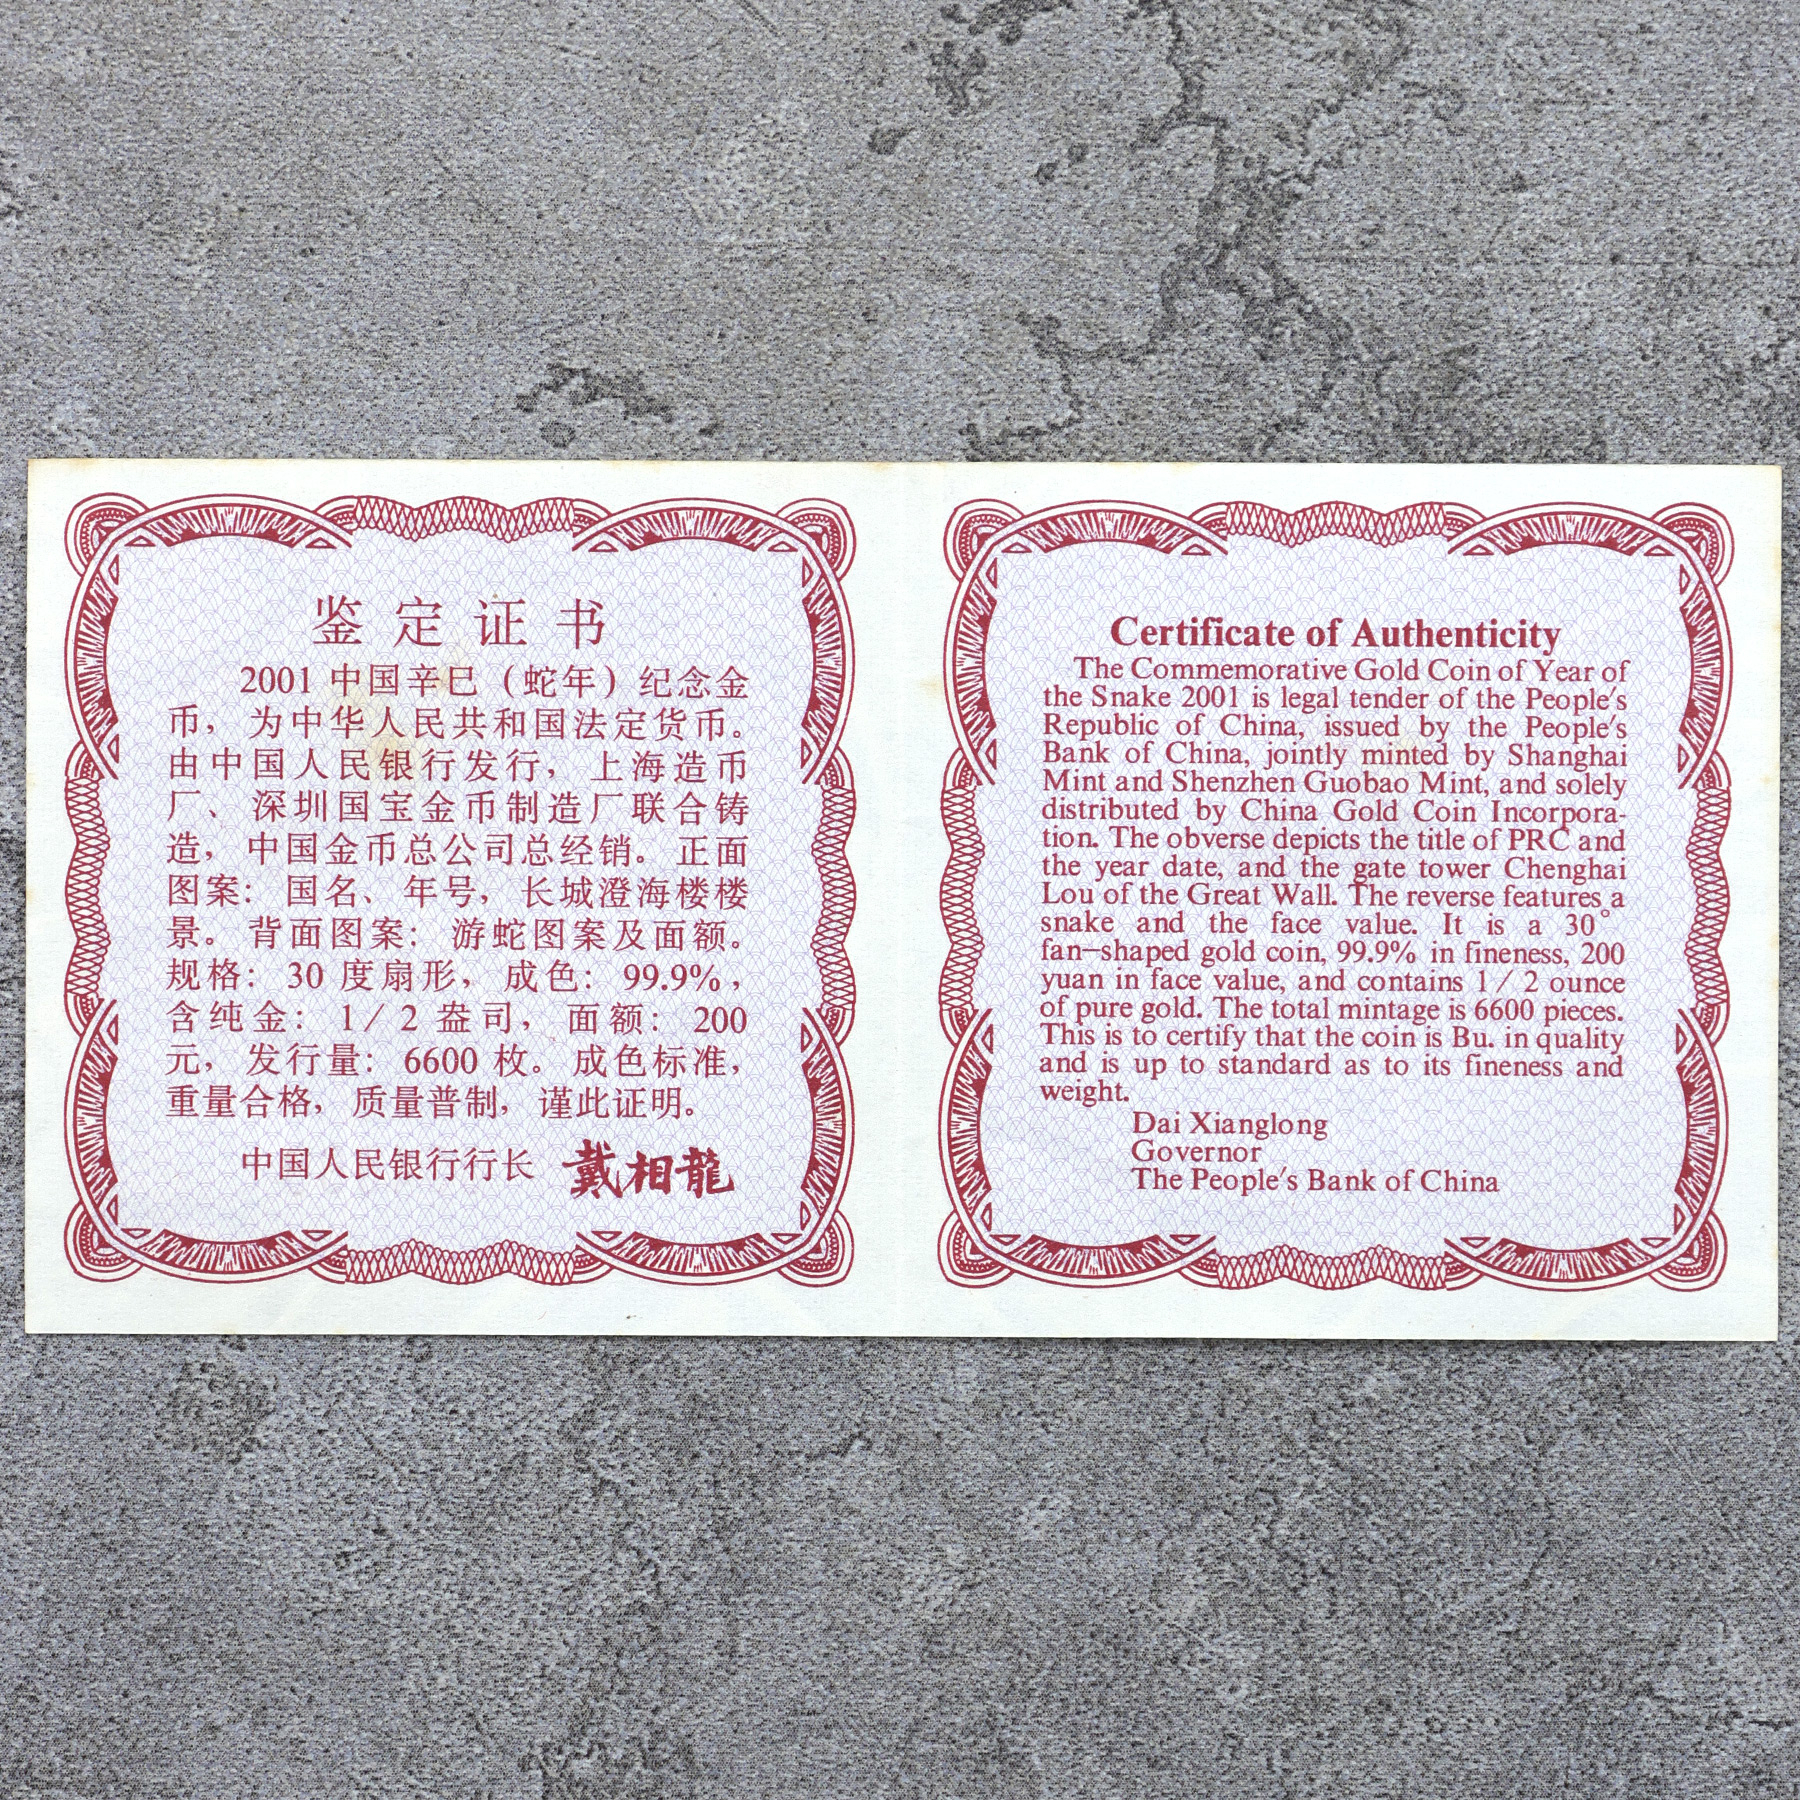 鉴定证书
2001 中国辛巳（蛇年）纪念金
币，为中华人民共和国法定货币。
由中国人民银行发行，上海造币
厂、深圳国宝金币制造厂联合铸
造，中国金币总公司总经销。正面
图案：国名、年号，长城澄海楼楼
景。背面图案：游蛇图案及面额。
规格：30 度扇形，成色：99.9%，
含纯金：1/2 盎司，面额：200
元，发行量：6600 枚。成色标准，
重量合格，质量普制，谨此证明。
中国人民银行行长 戴相龍
Certificate of Authenticity
The Commemorative Gold Coin of Year of
the Snake 2001 is legal tender of the People's
Republic of China, issued by the People's
Bank of China, jointly minted by Shanghai
Mint and Shenzhen Guobao Mint, and solely
distributed by China Gold Coin Incorpora-
tion. The obverse depicts the title of PRC and
the year date, and the gate tower Chenghai
Lou of the Great Wall. The reverse features a
snake and the face value. It is a 30°
fan-shaped gold coin, 99.9% in fineness, 200
yuan in face value, and contains 1/2 ounce
of pure gold. The total mintage is 6600 pieces.
This is to certify that the coin is Bu. in quality
and is up to standard as to its fineness and
weight.
Dai Xianglong
Governor
The People's Bank of China